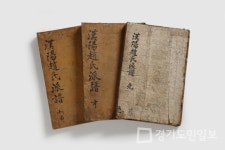 漢陽趙氏派譜
漢陽趙氏派譜 中
漢陽趙氏派譜
경기도민일보